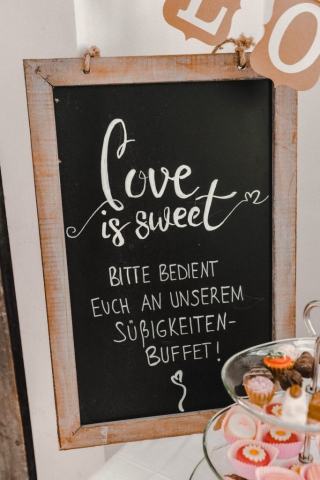 EO
Love
is sweet
BITTE BEDIENT
EUCH AN UNSEREM
SÜßIGKEITEN-
BUFFET!